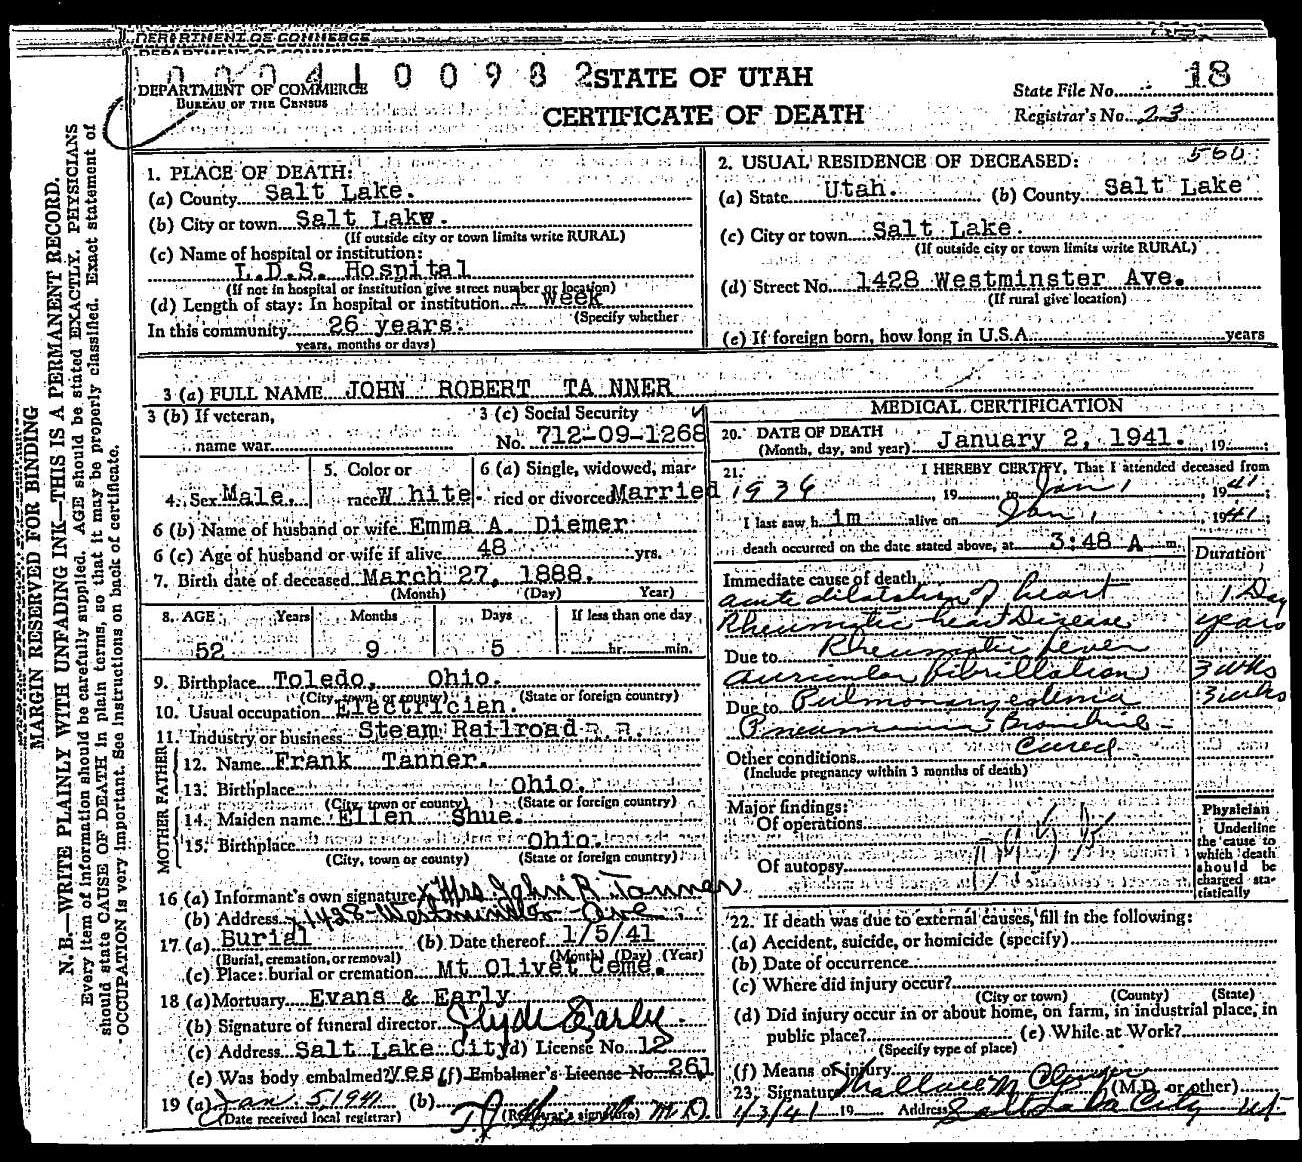 DEPARTMENT OF COMMERCE
0 0 0 4 1 0 0 9 8 2
STATE OF UTAH
CERTIFICATE OF DEATH
DEPARTMENT OF COMMERCE
BUREAU OF THE CENSUS
State File No. 18
Registrar's No. 23
MARGIN RESERVED FOR BINDING
N. B.—WRITE PLAINLY WITH UNFADING INK—THIS IS A PERMANENT RECORD.
Every item of information should be carefully supplied. AGE should be stated EXACTLY. PHYSICIANS
should state CAUSE OF DEATH in plain terms, so that it may be properly classified. Exact statement of
OCCUPATION is very important. See instructions on back of certificate.
1. PLACE OF DEATH:
(a) County Salt Lake.
(b) City or town Salt Lake.
(If outside city or town limits write RURAL)
(c) Name of hospital or institution:
L.D.S. Hospital
(If not in hospital or institution give street number or location)
(d) Length of stay: In hospital or institution 1 week
(Specify whether
In this community 26 years.
years, months or days)
2. USUAL RESIDENCE OF DECEASED: 560
(a) State Utah. (b) County Salt Lake
(c) City or town Salt Lake.
(If outside city or town limits write RURAL)
(d) Street No. 1428 Westminster Ave.
(If rural give location)
(e) If foreign born, how long in U.S.A. years
3 (a) FULL NAME JOHN ROBERT TA NNER
3 (b) If veteran,
name war
3 (c) Social Security
No. 712-09-1268
4. Sex Male.
5. Color or
race W hite.
6 (a) Single, widowed, mar-
ried or divorced Married
6 (b) Name of husband or wife Emma A. Diemer
6 (c) Age of husband or wife if alive 48 yrs.
7. Birth date of deceased March 27, 1888.
(Month) (Day) Year)
8. AGE Years Months Days If less than one day
52 9 5 hr. min.
9. Birthplace Toledo, Ohio.
(City, town or county) (State or foreign country)
10. Usual occupation Electrician.
11. Industry or business Steam Railroad R.R.
FATHER
12. Name Frank Tanner.
13. Birthplace Ohio.
(City, town or county) (State or foreign country)
MOTHER
14. Maiden name Ellen Shue.
15. Birthplace Ohio.
(City, town or county) (State or foreign country)
16 (a) Informant's own signature x Mrs John R Tanner
(b) Address x 1428-Westminster-Ave.
17 (a) Burial (b) Date thereof 1/5/41
(Burial, cremation, or removal) (Month) (Day) (Year)
(c) Place: burial or cremation Mt Olivet Ceme.
18 (a) Mortuary Evans & Early
(b) Signature of funeral director Clyde Early.
(c) Address Salt Lake City (d) License No. 12
(e) Was body embalmed? yes (f) Embalmer's License No. 261
19 (a) Jan. 5 1941 (b) M.D.
(Date received local registrar) (Registrar's signature)
MEDICAL CERTIFICATION
20. DATE OF DEATH
(Month, day, and year) January 2, 1941. 19 ;
21. I HEREBY CERTIFY, That I attended deceased from
1936, 19 , to Jan 1, 1941;
I last saw h im alive on Jan 1, 1941;
death occurred on the date stated above, at 3:48 A m.
Duration
Immediate cause of death
acute dilatation of heart 1 Day
Rheumatic heart Disease years
Due to Rheumatic fever
auricular fibrillation 3 wks
Due to Pulmonary edema 3 wks
Pneumonia Bronchial -
Cured
Other conditions
(Include pregnancy within 3 months of death)
Major findings:
Of operations
Of autopsy
Physician
Underline
the cause to
which death
should be
charged sta-
tistically
22. If death was due to external causes, fill in the following:
(a) Accident, suicide, or homicide (specify)
(b) Date of occurrence
(c) Where did injury occur?
(City or town) (County) (State)
(d) Did injury occur in or about home, on farm, in industrial place, in
public place? (e) While at Work?
(Specify type of place)
(f) Means of injury
23. Signature Wallace M (M.D. or other)
1/3/41 19 Address Salt Lake City Ut